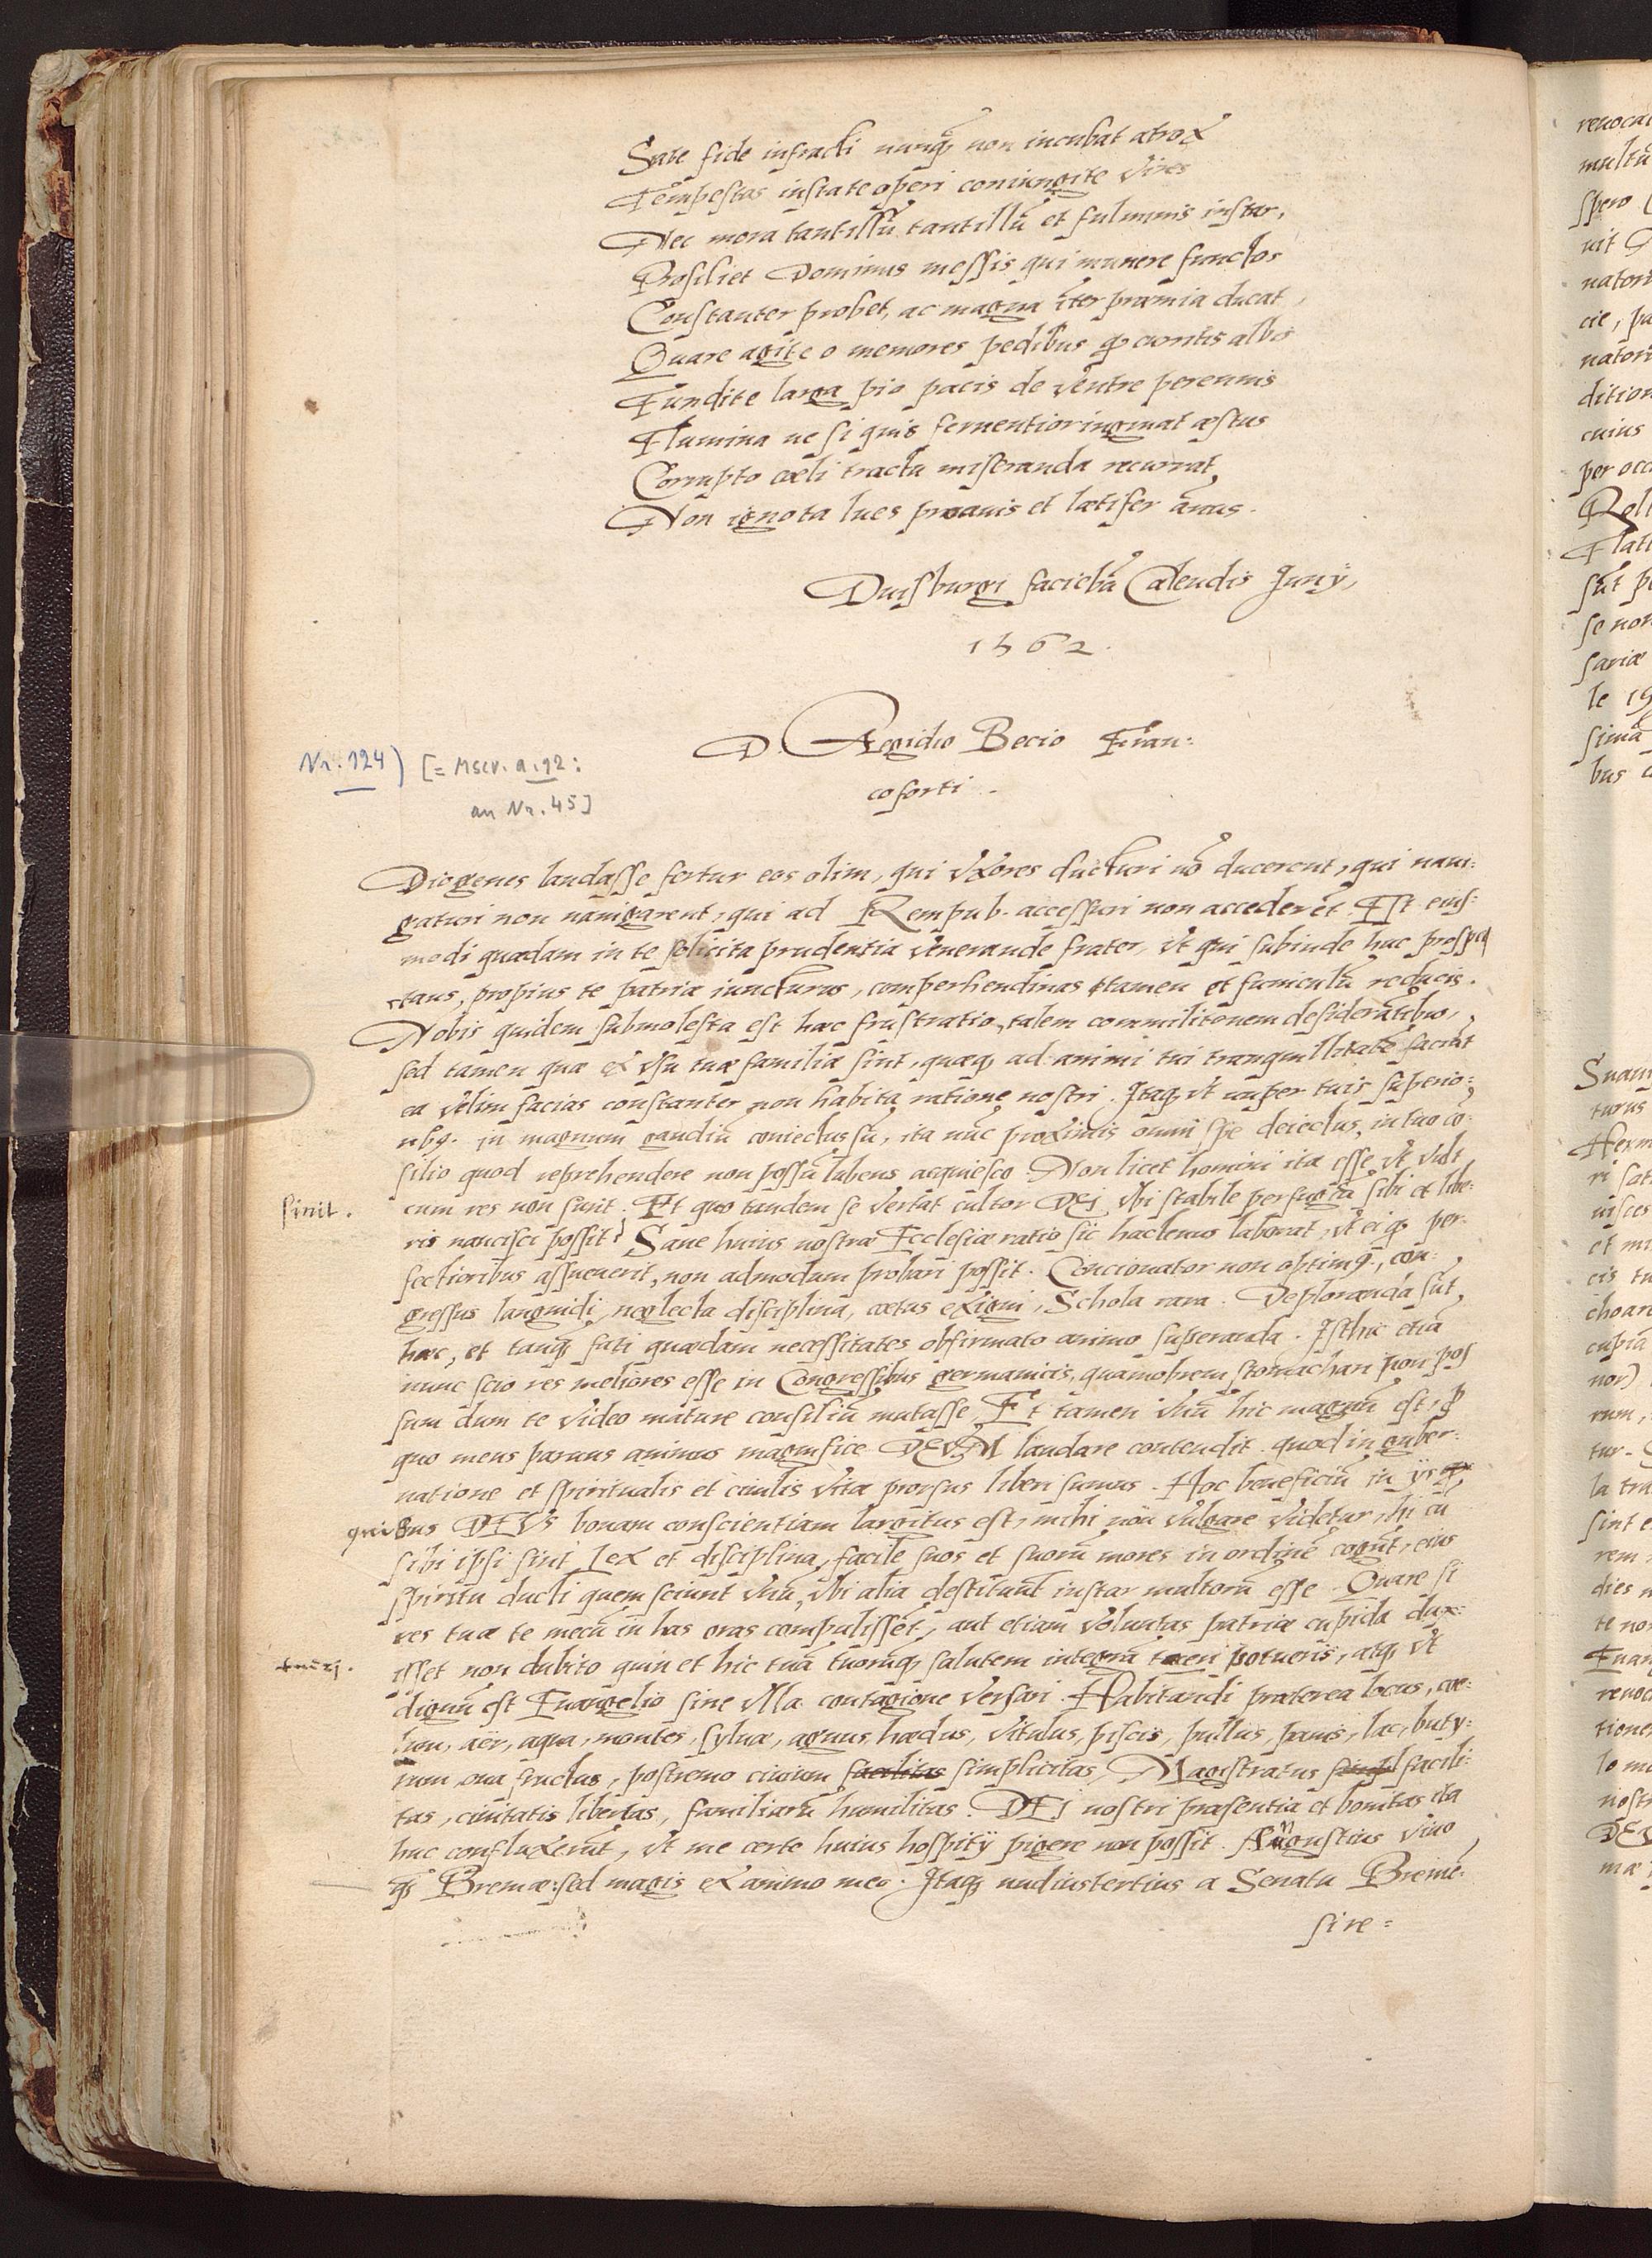 State fide infracti nunq̃ non incubat atrox
Tempestas instate operi coniungite vires
Nec mora tantillũ tantillũ et fulminis instar,
Prosiliet Dominus messis qui munere functos
Constanter probet, ac magna iter præmia ducat,
Quare agite o memores pedibus q̃ curritis albis
Fundite larga pio pacis de ventre perennis
Flumina ne si quis feruentior ingruat æstus
Corrupto cœli tractu miseranda recurrat,
Non ignota lues proauis et lætifer annus.
Duisburgi faciebã Calendis Junij,
1562.
D. Aegidio Becio Fran:
coforti.
Nr. 124) [= Mscr. a.12:
an Nr. 45]
Diogenes laudasse fertur eos olim, qui vxores ducturi nõ ducerent, qui naui:
gaturi non nauigarent, qui ad Rempub. accessuri non accederẽt. Est eius:
modi quædam in te solicita prudentia venerande frater, vt qui subinde huc prospec
tans, propius te patriæ iuncturus, comperhendinas tamen et funiculũ reducis.
Nobis quidem submolesta est hæc frustratio, talem commilitonem desiderãtibus,
sed tamen quæ ex vsu tuæ familiæ sint, quæq; ad animi tui tranquillitatẽ faciãt
ea velim facias constanter non habita ratione nostri. Itaq; vt nuper tuis superio:
ribq. in magnum gaudiũ coniectus sũ, ita nũc proximis omni spe deiectus, in tuo cõ
silio quod reprehendere non possũ lubens acquiesco. Non licet homini ita esse vt vult
sinit.
cum res non sinit. Et quo tandem se vertat cultor DEI vbi stabile perfugiũ sibi et libe:
ris nancisci possit? Sane huius nostræ Ecclesiæ ratio sic hactenus laborat, vt ei q̃ per:
fectioribus assueuerit, non admodum probari possit. Concionator non optimq., con:
gressus languidi, neglecta disciplina, cœtus exigui, Schola rara. Deploranda sũt
hæc, et tanq̃ fati quædam necessitates obfirmato animo superanda. Isthic etiã
nunc scio res meliores esse in Congressibus germanicis, quamobrem stomachari non pos
sum dum te video mature consiliũ mutasse. Et tamen vnũ hic magnũ est, p
quo meus paruus animus magnifice DEVM laudare contendit. quod in guber:
natione et spiritualis et ciuilis vitæ prorsus liberi sumus. Hoc beneficiũ in ijs
quibus DEVS bonam conscientiam largitus est, mihi nõ vulgare videtur, hi cũ
sibi ipsi sint lex et disciplina, facile suos et suorũ mores in ordinẽ cogũt, eius
spiritu ducti quem sciunt vnũ, vbi alia destituunt instar multorũ esse. Quare si
res tuæ te mecũ in has oras compulissẽt, aut etiam voluntas patriæ cupida dux:
tueri.
isset non dubito quin et hic tuã tuorũq; salutem integrã tueri potueris, atq; vt
dignũ est Euangelio sine vlla contagione versari. Habitandi præterea locus, cœ:
lum, aër, aqua, montes, syluæ, agnus, hædus, vitulus, piscis, pullus, panis, lac, buty:
rum, oua fructus, postremo ciuium facilitas simplicitas, Magistratus simpl facili:
tas, ciuitatis libertas, familiarũ humilitas. DEI nostri præsentia et bonitas ita
huc confluxerũt, vt me certe huius hospitij pigere non possit. Angustius viuo
q̃ Bremæ: sed magis ex animo meo. Itaq; nudiustertius a Senatu Bremẽ:
si re=